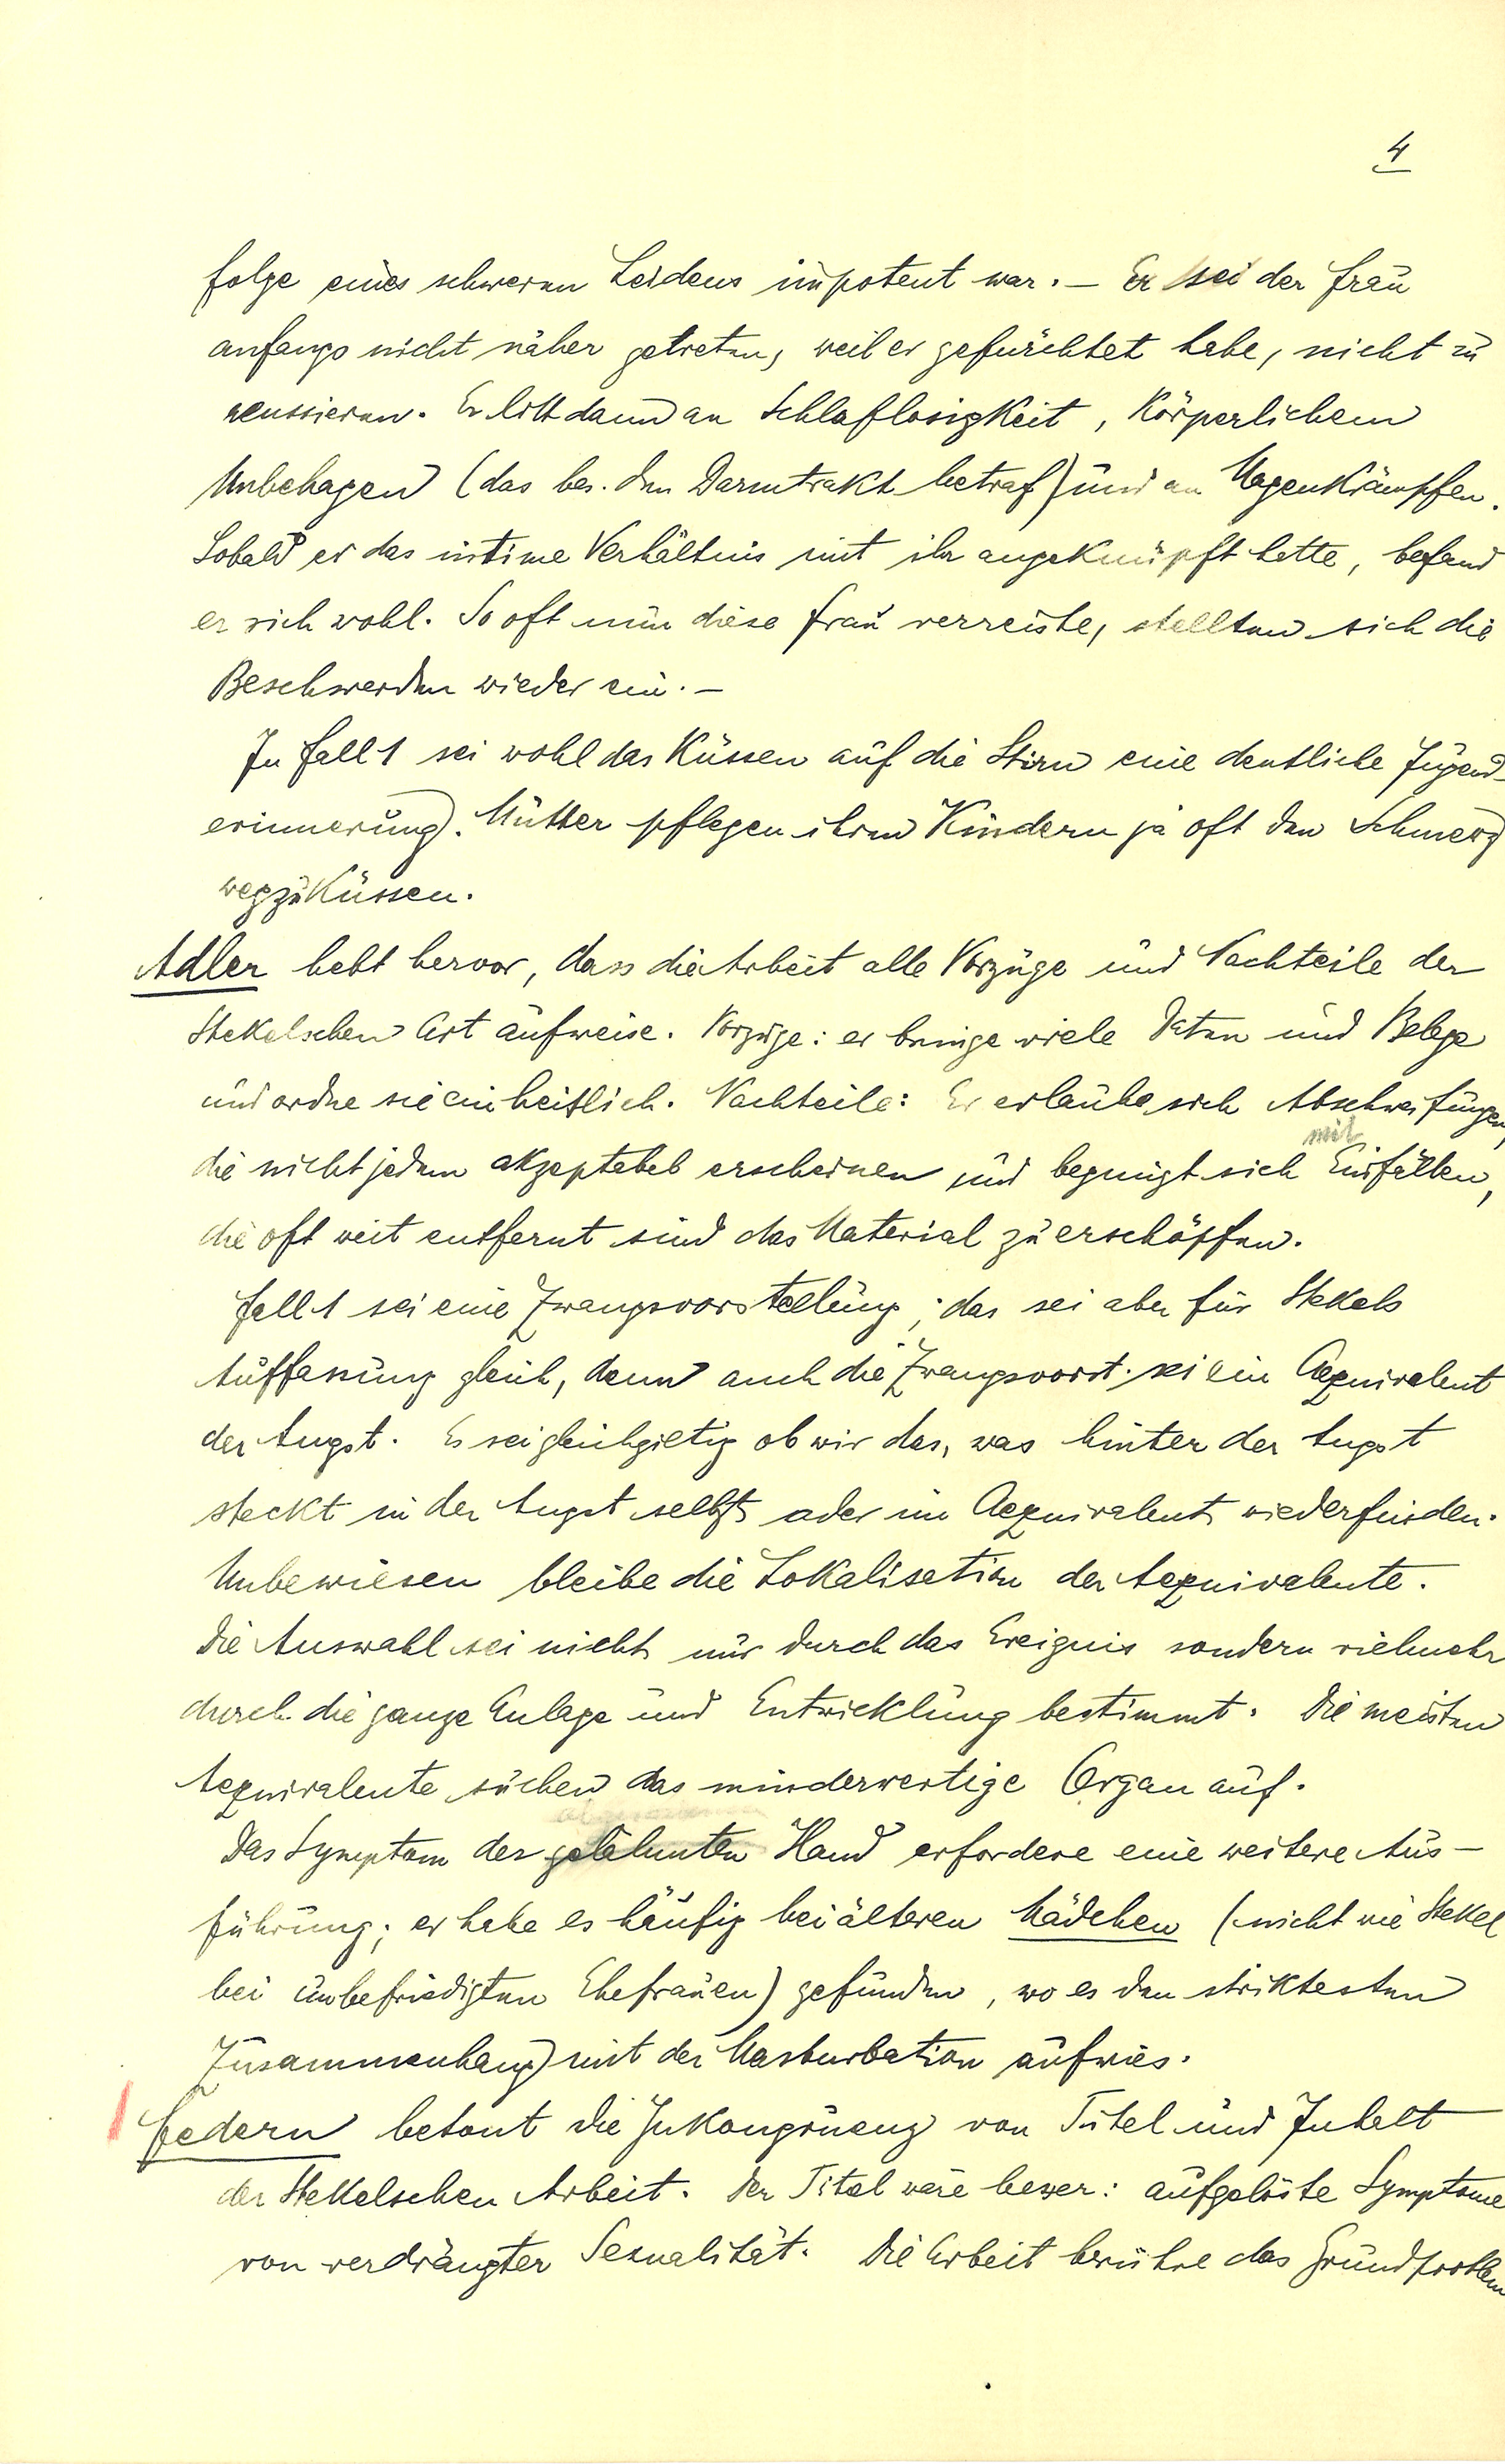 4
folge eines schweren Leidens impotent war. – Er sei der Frau
anfangs nicht näher getreten, weil er gefürchtet habe, nicht zu
reussieren. Er litt dann an Schlaflosigkeit, Körperlichem
Unbehagen (das bes. den Darmtrakt betraf) und an Magenkrämpfen.
Sobald er das intime Verhältnis mit ihr angeknüpft hatte, befand
er sich wohl. So oft nun diese Frau verreiste, stellten sich die
Beschwerden wieder ein. –
In Fall 1 sei wohl das Küssen auf die Stirn eine deutliche Jugend-
erinnerung. Mütter pflegen ihren Kindern ja oft den Schmerz
wegzuküssen.
Adler hebt hervor, dass die Arbeit alle Vorzüge und Nachteile der
Stekelschen Art aufweise. Vorzüge: er bringe viele Daten und Belege
und ordne sie einheitlich. Nachteile: Er erlaube sich Abschweifungen,
die nicht jedem akzeptabel erscheinen und begnügt sich mit Einfällen,
die oft weit entfernt sind das Material zu erschöpfen.
Fall 1 sei eine Zwangsvorstellung; das sei aber für Stekels
Auffassung gleich, denn auch die Zwangsvorst. sei ein Aequivalent
der Angst. Es sei gleichgiltig ob wir das, was hinter der Angst
steckt in der Angst selbst oder im Aequivalent wiederfinden.
Unbewiesen bleibe die Lokalisation der Aequivalente.
Die Auswahl sei nicht nur durch das Ereignis sondern vielmehr
durch die ganze Anlage und Entwicklung bestimmt. Die meisten
Aequivalente suchen das minderwertige Organ auf.
Das Symptom der gelähmten Hand erfordere eine weitere Aus-
führung; er habe es häufig bei älteren Mädchen (nicht wie Stekel
bei unbefriedigten Ehefrauen) gefunden, wo es den striktesten
Zusammenhang mit der Masturbation aufwies.
Federn betont die Inkongruenz von Titel und Inhalt
der Stekelschen Arbeit. Der Titel wäre besser: aufgelöste Symptome
von verdrängter Sexualität. Die Arbeit berühre das Grundproblem